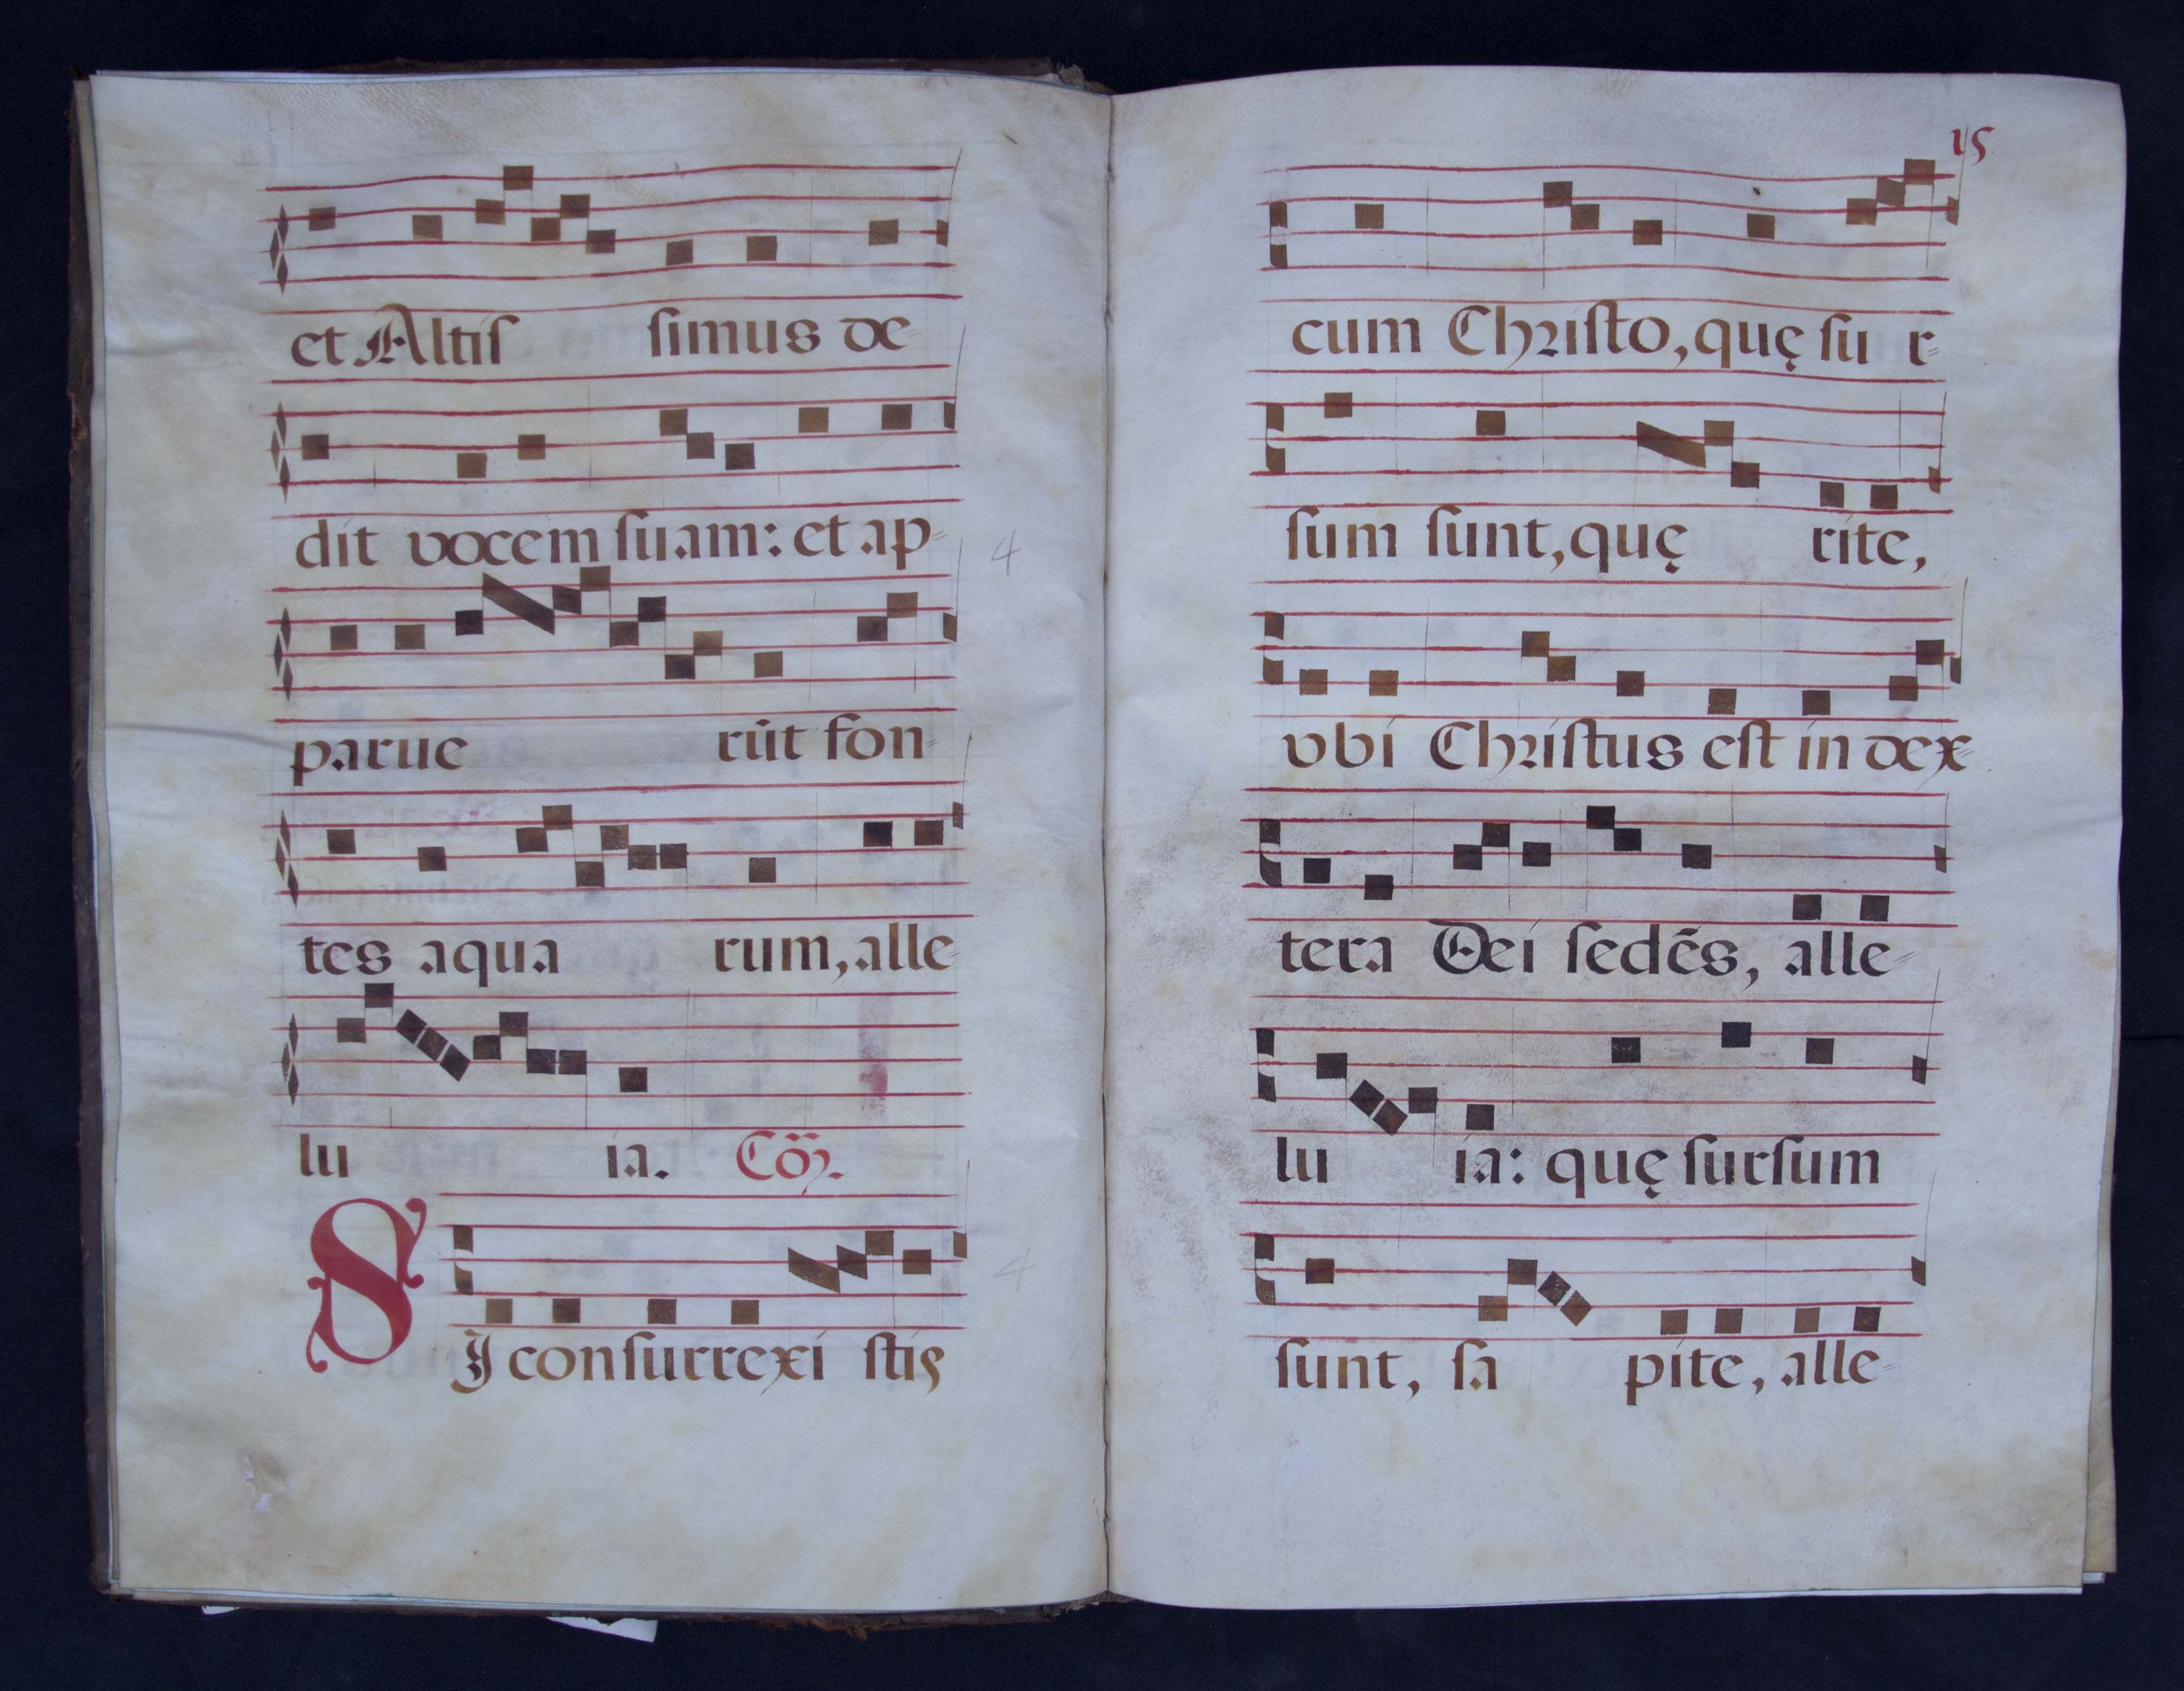 et Altiſ ſimus de-
dit vocem ſuam: et ap-
4
parue rūt fon-
tes aqua rum, alle-
lu ia. Cōꝫ.
4
SJ conſurrexi ſtis
15
cum Chriſto, quę ſu r-
ſum ſunt, quę rite,
vbi Chriſtus eſt in dex-
tera Dei ſedēs, alle-
lu ia: quę ſurſum
ſunt, ſa pite, alle-